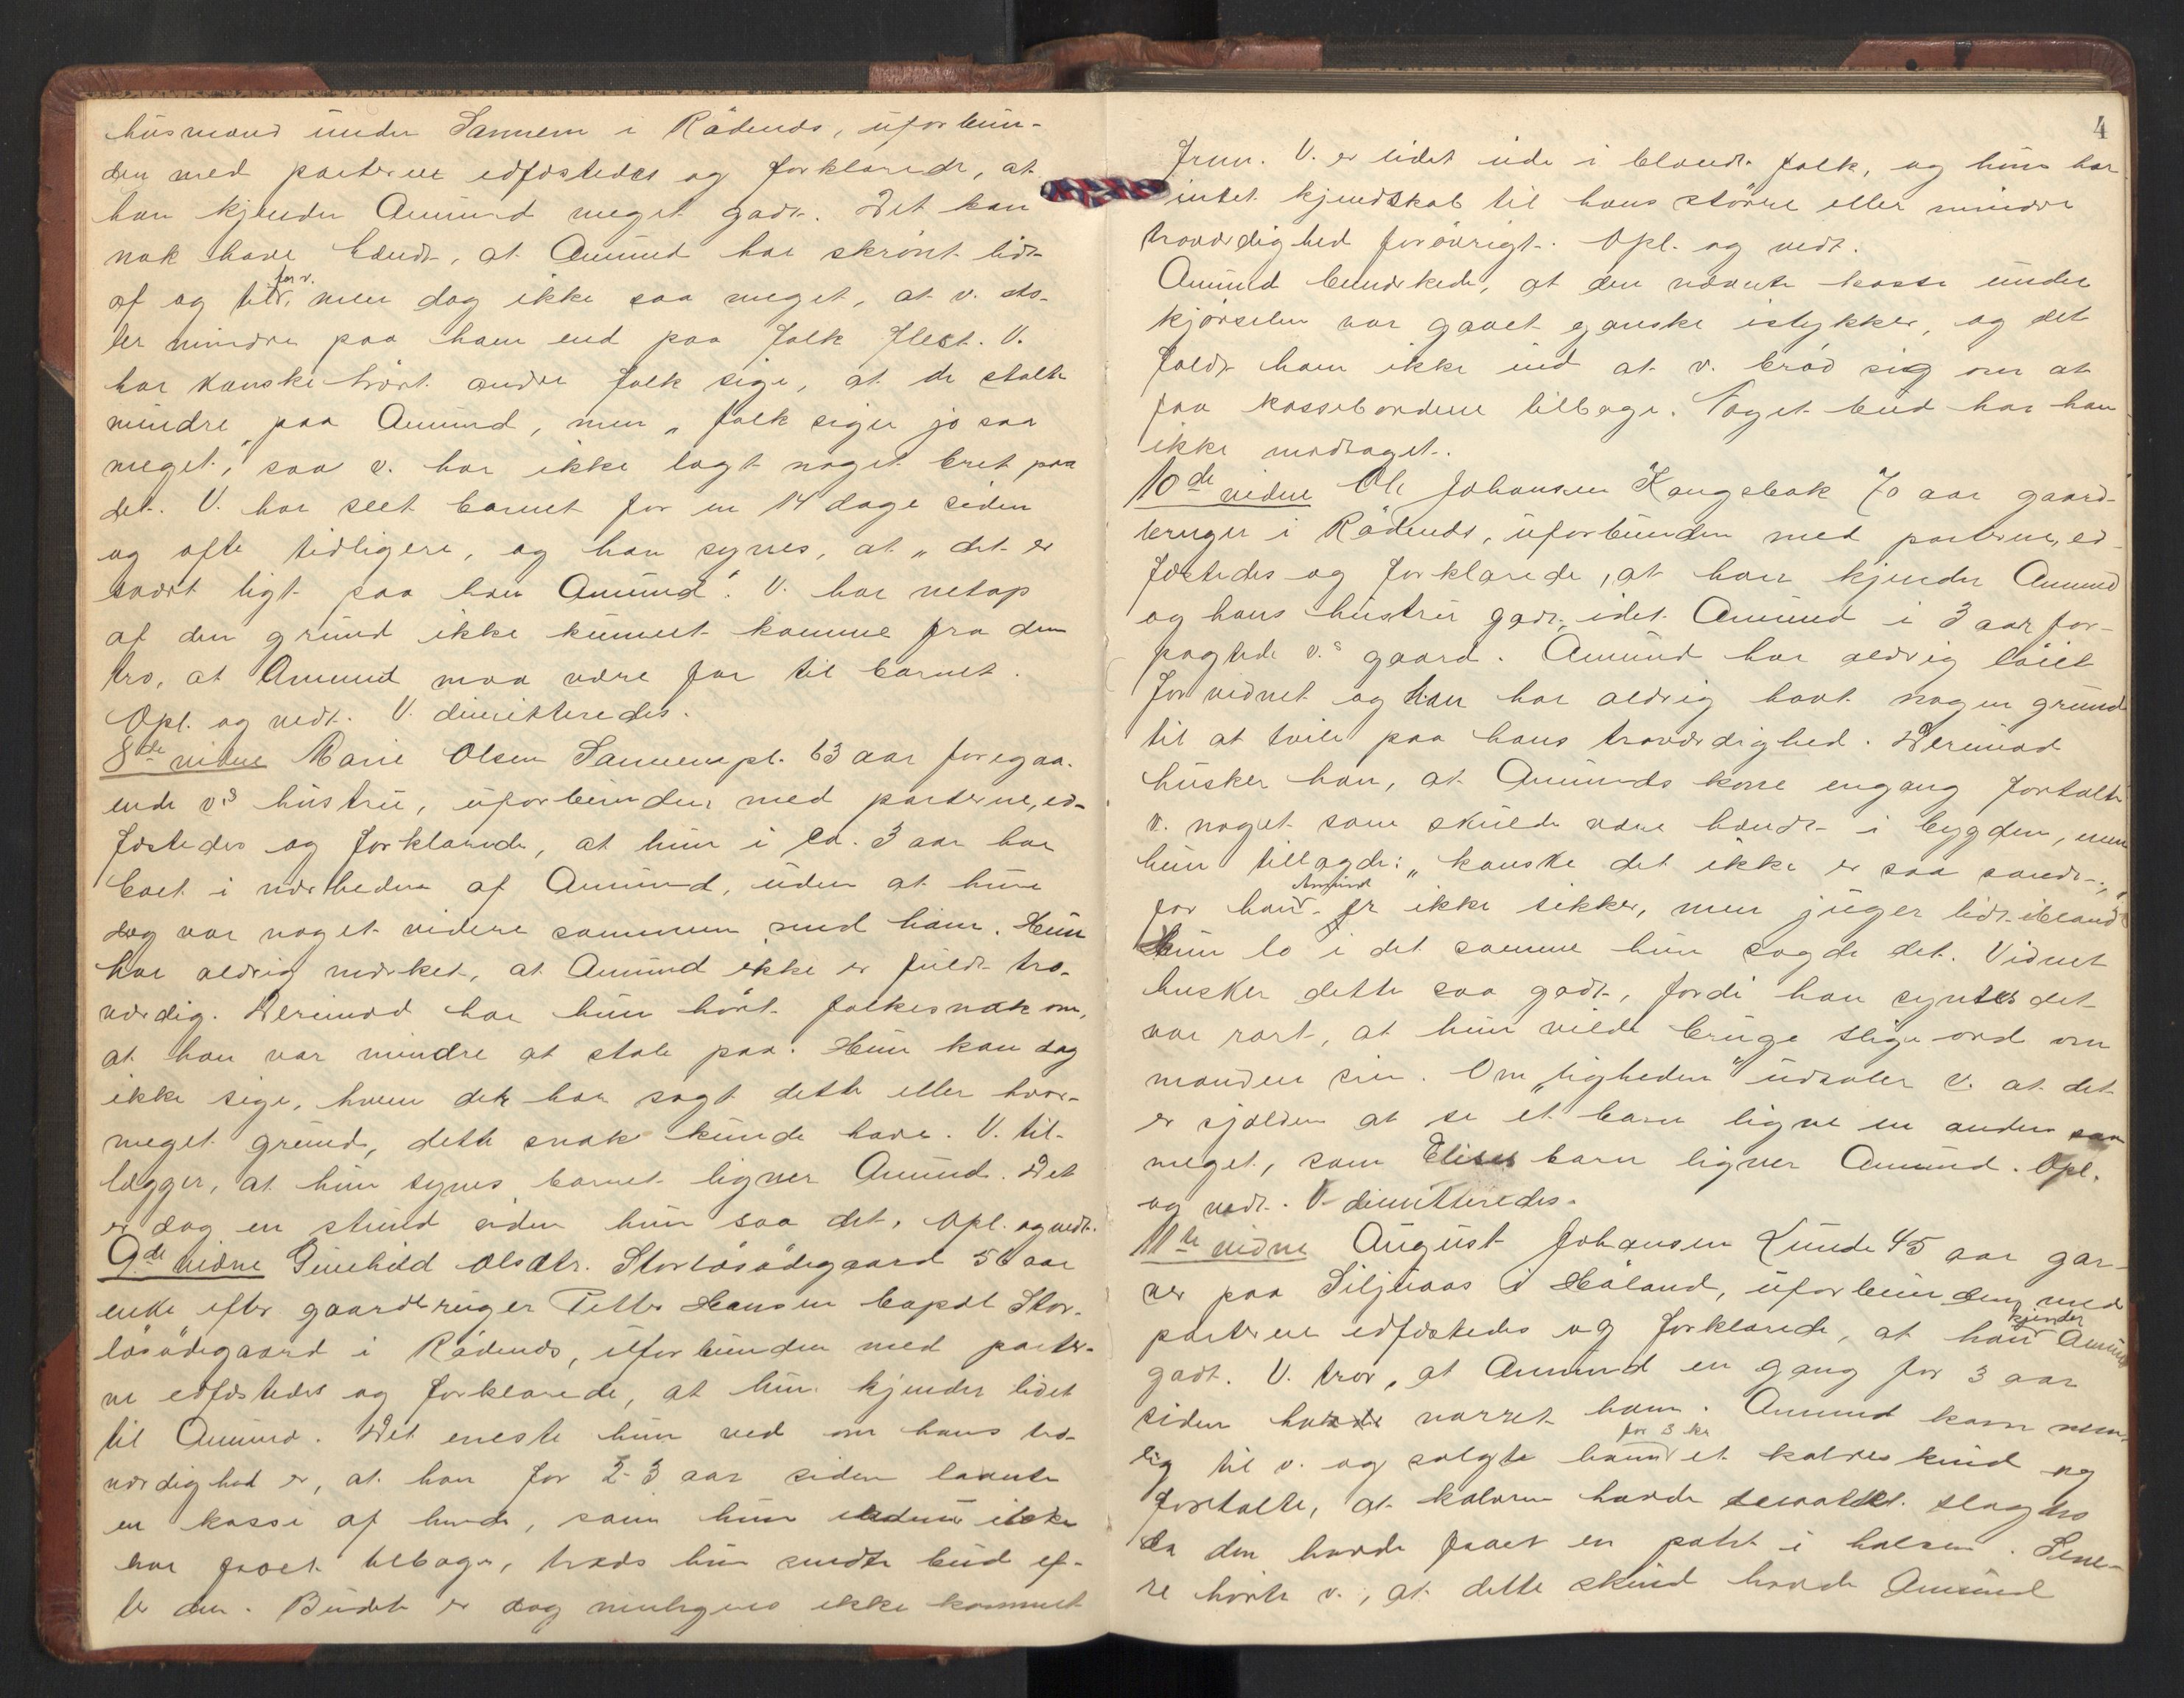 husmand under Sannem i Rødenæs, uforbun-
den med parterne edfæstedes og forklarede, at
han kjender Amund meget godt. Det kan
nok have hændt, at Amund har skrønt lidt
af og til for v., men dog ikke saa meget, at v. sto-
ler mindre paa ham end paa folk flest. V.
har kanske hørt andre folk sige, at de stolte
mindre paa Amund, men „folk siger jo saa
meget," saa v. har ikke lagt noget bret paa
det. V. har seet barnet for en 14 dage siden
og ofte tidligere, og han synes, at „det er
svært ligt paa han Amund". V. har netop
af den grund ikke kunnet komme fra den
tro, at Amund maa være far til barnet.
Opl. og vedt. V. dimitteredes.
8de vidne Marie Olsen Sannempl. 63 aar foregaa-
ende v.s hustru, uforbunden med parterne, ed-
fæstedes og forklarede, at hun i ca. 3 aar har
boet i nærheden af Amund, uden at hun
dog var noget videre sammen med ham. Hun
har aldrig mærket, at Amund ikke er fuldt tro-
værdig. Derimod har hun hørt folkesnak om,
at han var mindre at stole paa. Hun kan dog
ikke sige, hvem der har sagt dette eller hvor-
meget grund, dette snak kunde have. V. til-
lægger, at hun synes barnet ligner Amund. Det
er dog en stund siden hun saa det. Opl. og vedt.
9de vidne Gunhild Olsdtr. Storløsødegaard 56 aar
enke efter gaardbruger Petter Hansen bopæl Stor-
løsødegaard i Rødenæs, uforbunden med parter-
ne edfæstedes og forklarede, at hun kjender lidet
til Amund. Det eneste hun ved om hans tro-
værdighed er, at han for 2-3 aar siden laante
en kasse af hende, som hun endnu ikke
har faaet tilbage, trods hun sendte bud ef-
ter den. Budet er dog muligens ikke kommet
4
frem. V. er lidet ude i blandt folk, og hun har
intet kjendskab til hans større eller mindre
troværdighed forøvrigt. Opl. og vedt.
Amund bemærkede, at den nævnte kasse under
kjørselen var gaaet ganske istykker, og det
faldt ham ikke ind at v. brød sig om at
faa kassebordene tilbage. Noget bud har han
ikke modtaget.
10de vidne Ole Johansen Kangsbak 70 aar gaard-
bruger i Rødenæs, uforbunden med parterne, ed-
fæstedes og forklarede, at han kjender Amund
og hans hustru godt, idet Amund i 3 aar for-
pagtede v.s gaard. Amund har aldrig løiet
for vidnet og han har aldrig havt nogen grund
til at tvile paa hans troværdighed. Derimod
husker han, at Amunds kone engang fortalte
v. noget som skulde være hændt i bygden, men
hun tillagde: „kanske det ikke er saa sandt,
for han Amund er ikke sikker, men juger lidt iblandt"
Hun lo i det samme hun sagde det. Vidnet
husker dette saa godt, fordi han syntes det
var rart, at hun vilde bruge slige ord om
manden sin. Om „ligheden" udtaler v. at det
er sjælden at se et barn ligne en anden saa
meget, som Elises barn ligner Amund. Opl.
og vedt. V. dimitteredes.
11te vidne August Johansen Lunde 45 aar gar-
ver paa Siljuaas i Høland, uforbunden med
parterne edfæstedes og forklarede, at han kjender Amund
godt. V. tror, at Amund en gang for 3 aar
siden havde narret ham. Amund kom nem-
lig til v. og solgte ham for 3 kr et kalveskind og
fortalte, at kalven havde slagtes
da den havde faaet en potet i halsen. Sene-
re hørte v., at dette skind havde Amund